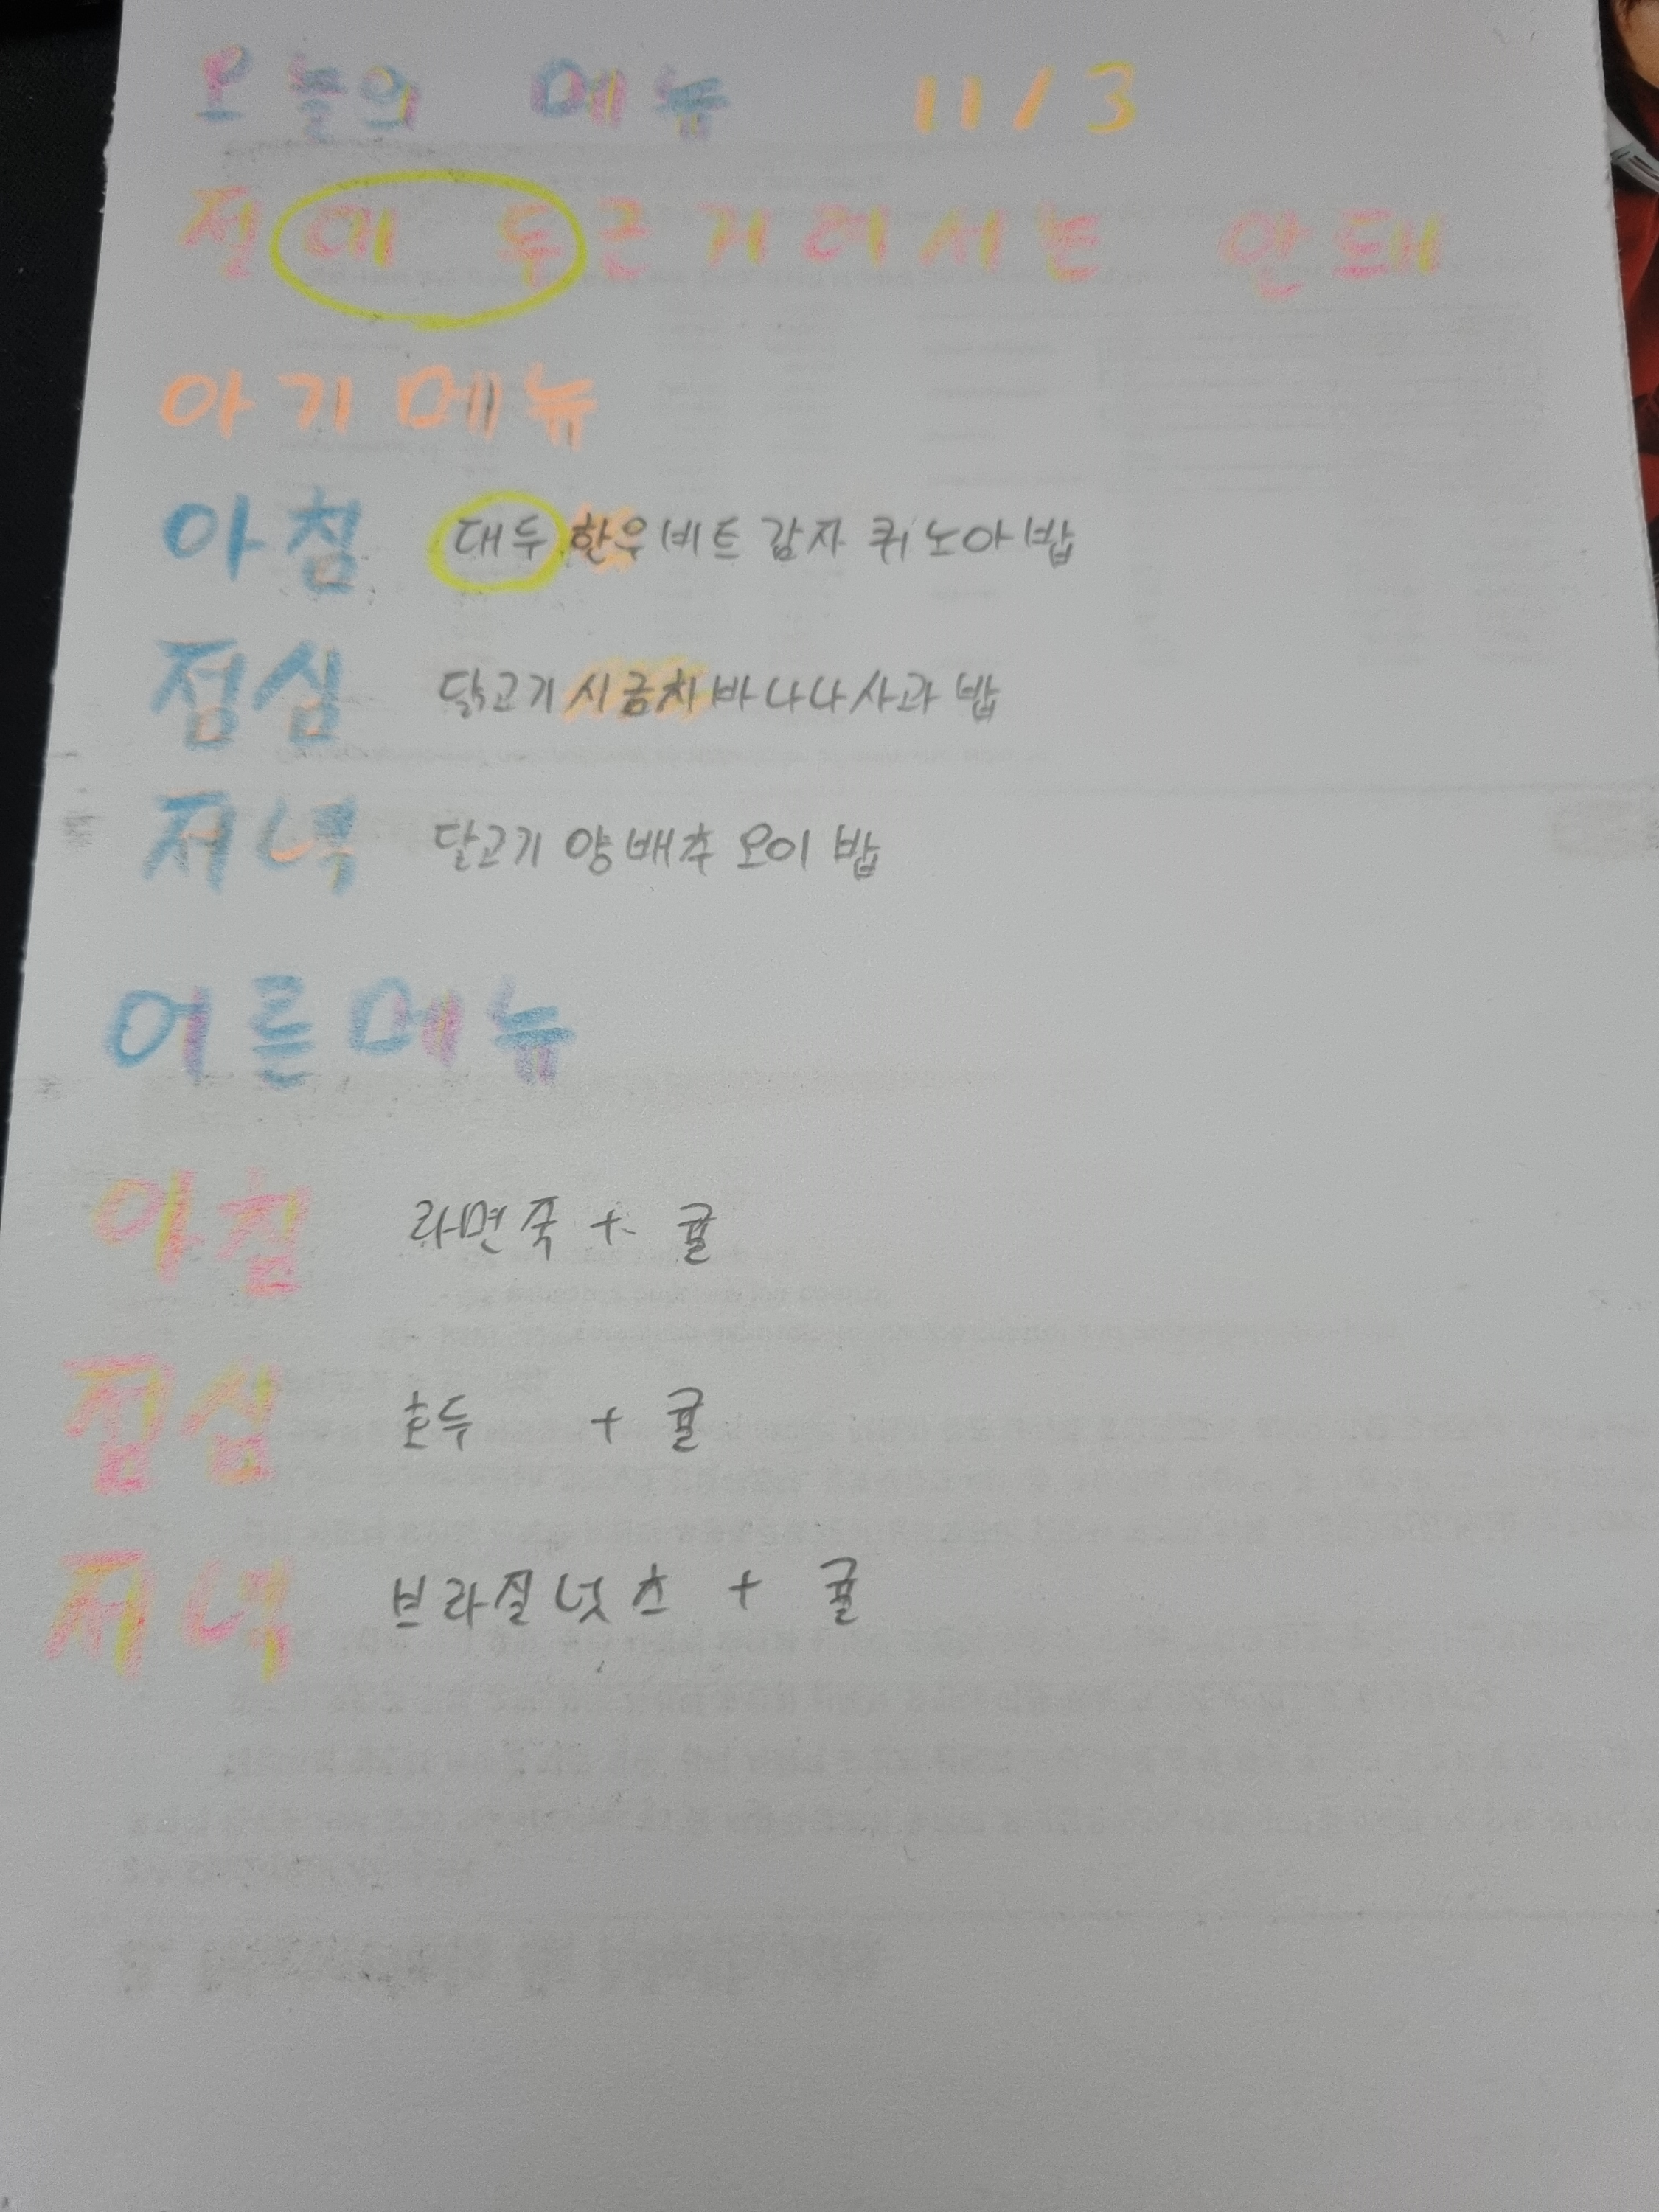 오늘의 메뉴 11/3
절대 두근거려서는 안돼
아기메뉴
아침 대두 한우 비트 감자 퀴노아 밥
점심 닭고기 시금치 바나나 사과 밥
저녁 닭고기 양배추 오이 밥
어른메뉴
아침 라면죽 + 귤
점심 호두 + 귤
저녁 브라질넛츠 + 귤